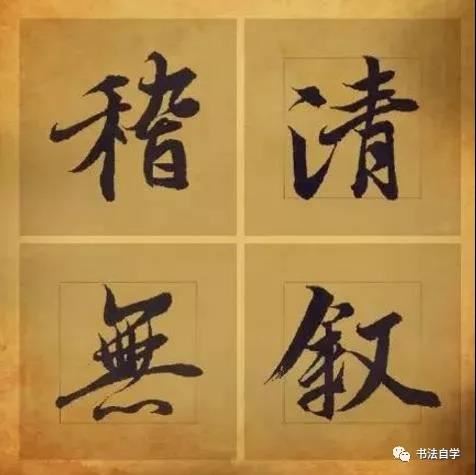 稽清
無叙
书法自学